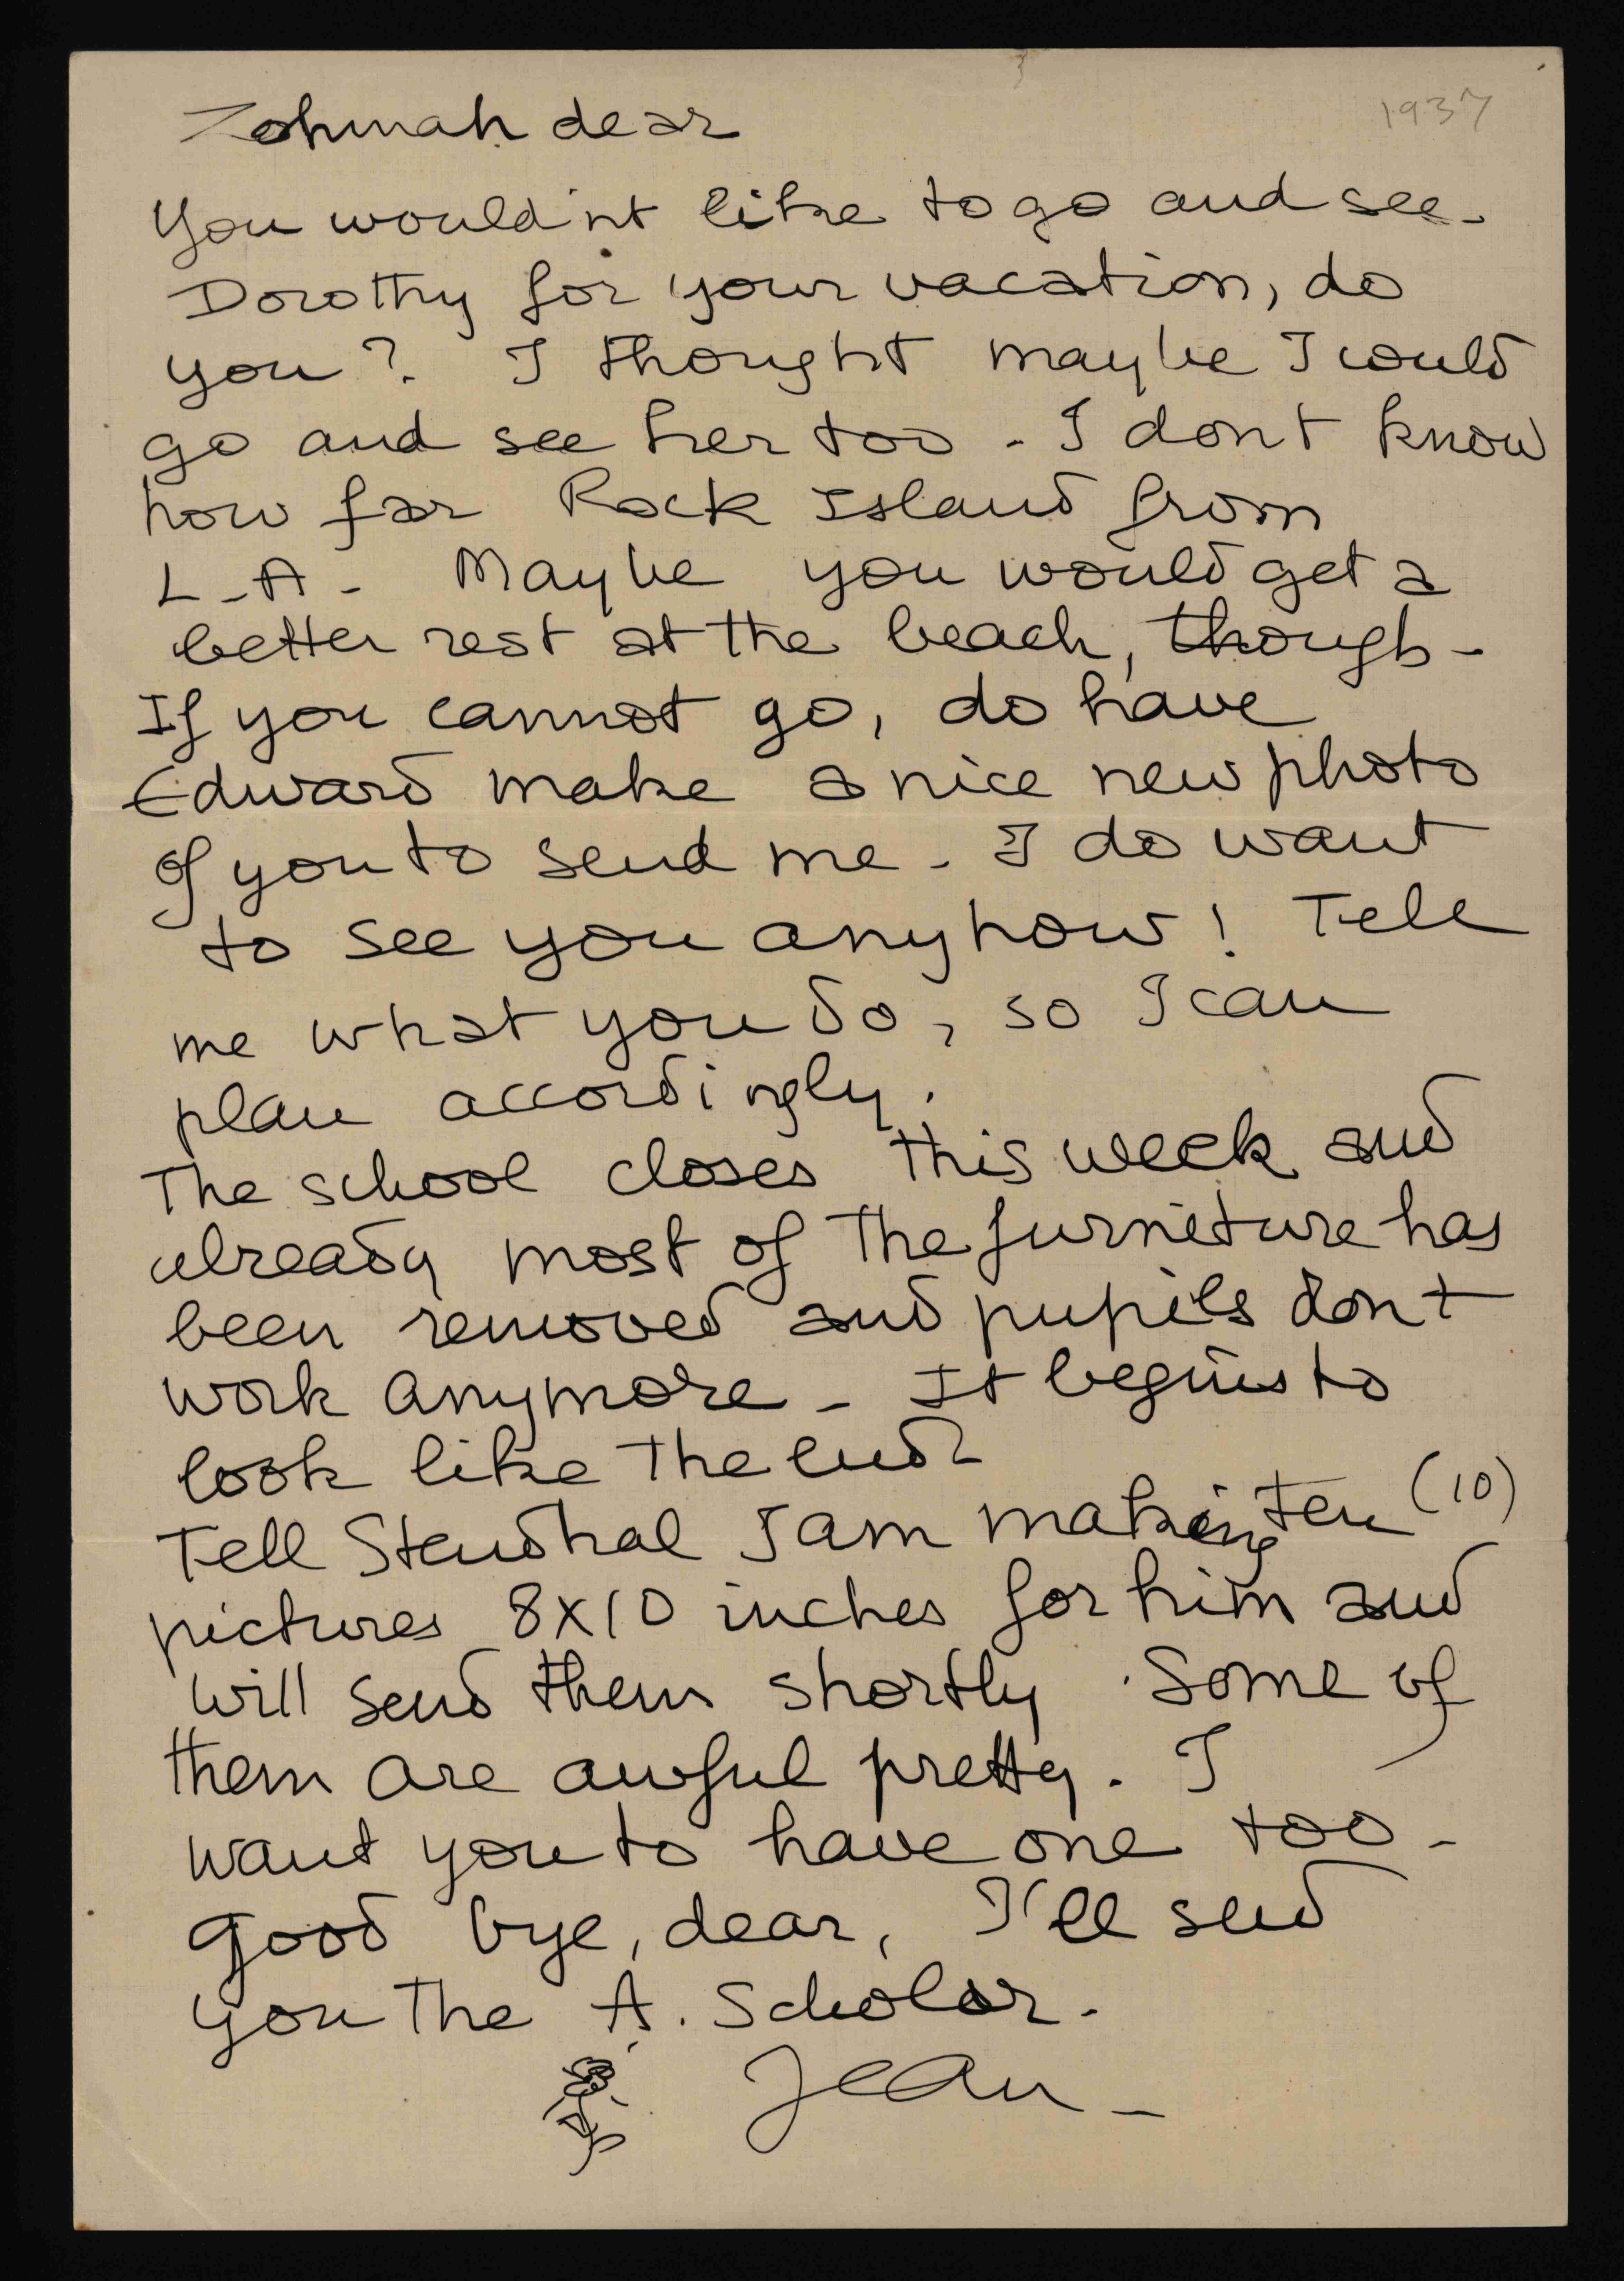 1937
Zohmah dear
You would'nt like to go and see
Dorothy for your vacation, do
you? I thought maybe I would
go and see her too - I don't know
how far Rock Island from
L.A. Maybe you would get a
better rest at the beach, though -
If you cannot go, do have
Edward make a nice new photo
of you to send me - I do want
to see you anyhow! Tell
me what you do, so I can
plan accordingly.
The school closes this week and
already most of the furniture has
been removed and pupils dont
work anymore - It begins to
look like the end -
Tell Stendhal I am making ten (10)
pictures 8x10 inches for him and
will send them shortly. Some of
them are awful pretty. I
want you to have one too -
good bye, dear, I'll send
you the A. Scholar.
Jean -